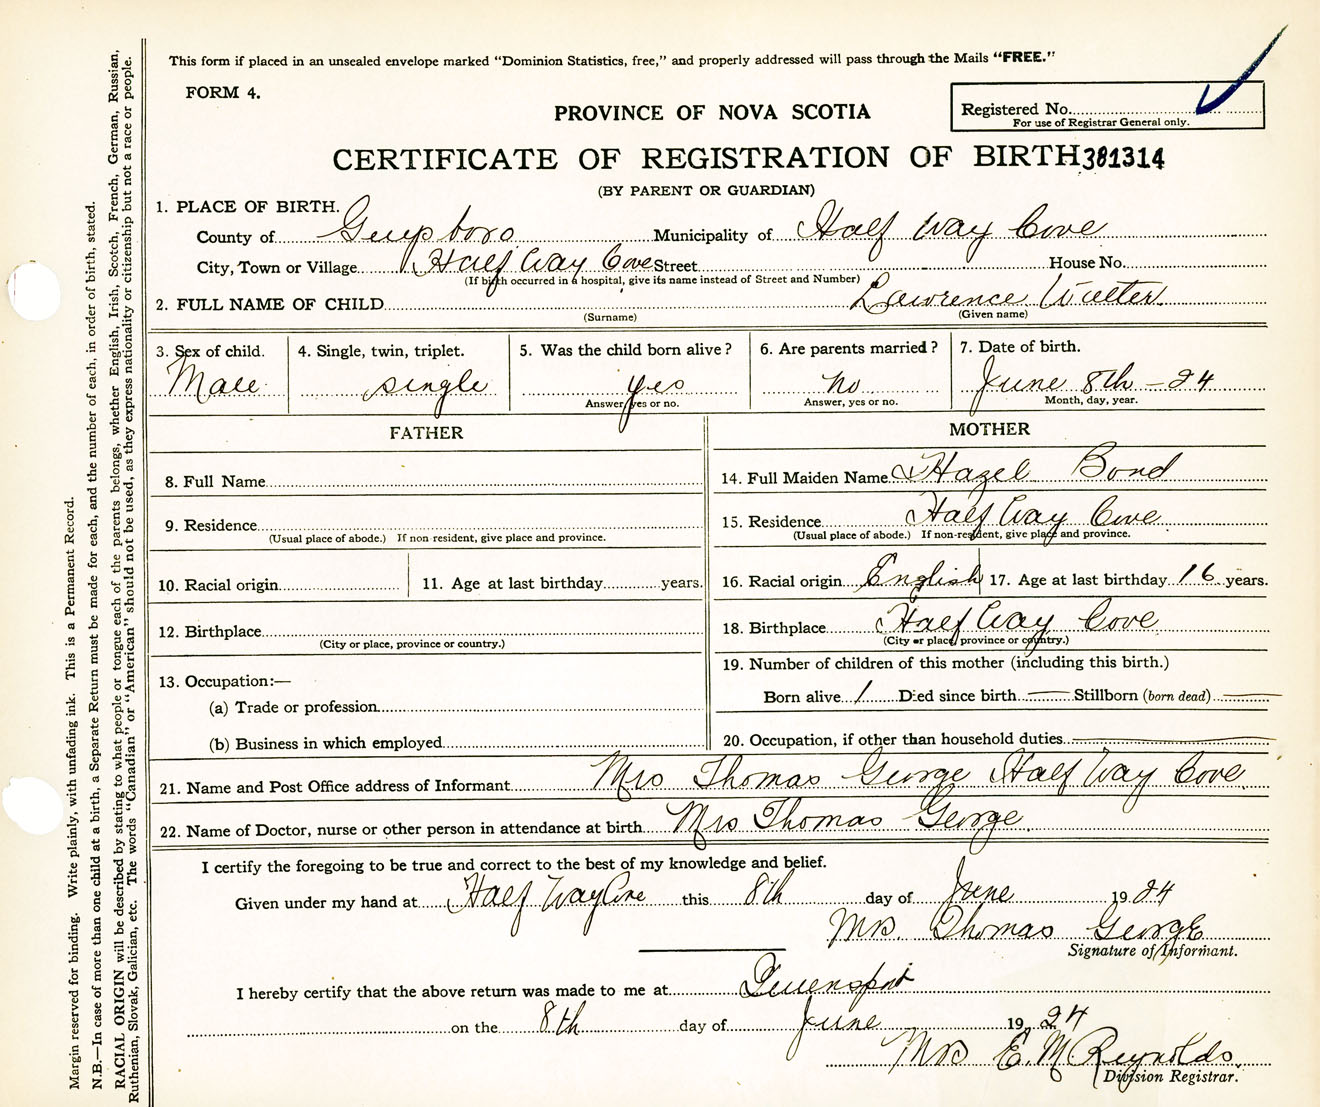 This form if placed in an unsealed envelope marked "Dominion Statistics, free," and properly addressed will pass through the Mails "FREE."
FORM 4.
PROVINCE OF NOVA SCOTIA
Registered No.
For use of Registrar General only.
CERTIFICATE OF REGISTRATION OF BIRTH 381314
(BY PARENT OR GUARDIAN)
1. PLACE OF BIRTH.
County of Guysboro Municipality of Half Way Cove
City, Town or Village Half Way Cove Street House No.
(If birth occurred in a hospital, give its name instead of Street and Number)
2. FULL NAME OF CHILD Lawrence Walter
(Surname) (Given name)
3. Sex of child. Male
4. Single, twin, triplet. single
5. Was the child born alive? yes
Answer, yes or no.
6. Are parents married? no
Answer, yes or no.
7. Date of birth. June 8th - 24
Month, day, year.
FATHER
8. Full Name
9. Residence
(Usual place of abode.) If non-resident, give place and province.
10. Racial origin 11. Age at last birthday years.
12. Birthplace
(City or place, province or country.)
13. Occupation:—
(a) Trade or profession
(b) Business in which employed
MOTHER
14. Full Maiden Name Hazel Bond
15. Residence Half Way Cove
(Usual place of abode.) If non-resident, give place and province.
16. Racial origin English 17. Age at last birthday 16 years.
18. Birthplace Half Way Cove
(City or place, province or country.)
19. Number of children of this mother (including this birth.)
Born alive 1 Died since birth — Stillborn (born dead) —
20. Occupation, if other than household duties —
21. Name and Post Office address of Informant Mrs Thomas George Half Way Cove
22. Name of Doctor, nurse or other person in attendance at birth Mrs Thomas George
I certify the foregoing to be true and correct to the best of my knowledge and belief.
Given under my hand at Half Way Cove this 8th day of June 1924
Mrs. Thomas George
Signature of Informant.
I hereby certify that the above return was made to me at Queensport
on the 8th day of June 1924
Mrs E. M. Reynolds.
Division Registrar.
Margin reserved for binding. Write plainly, with unfading ink. This is a Permanent Record.
N.B.—In case of more than one child at a birth, a Separate Return must be made for each, and the number of each, in order of birth, stated.
RACIAL ORIGIN will be described by stating to what people or tongue each of the parents belongs, whether English, Irish, Scotch, French, German, Russian,
Ruthenian, Slovak, Galician, etc. The words "Canadian" or "American" should not be used, as they express nationality or citizenship but not a race or people.